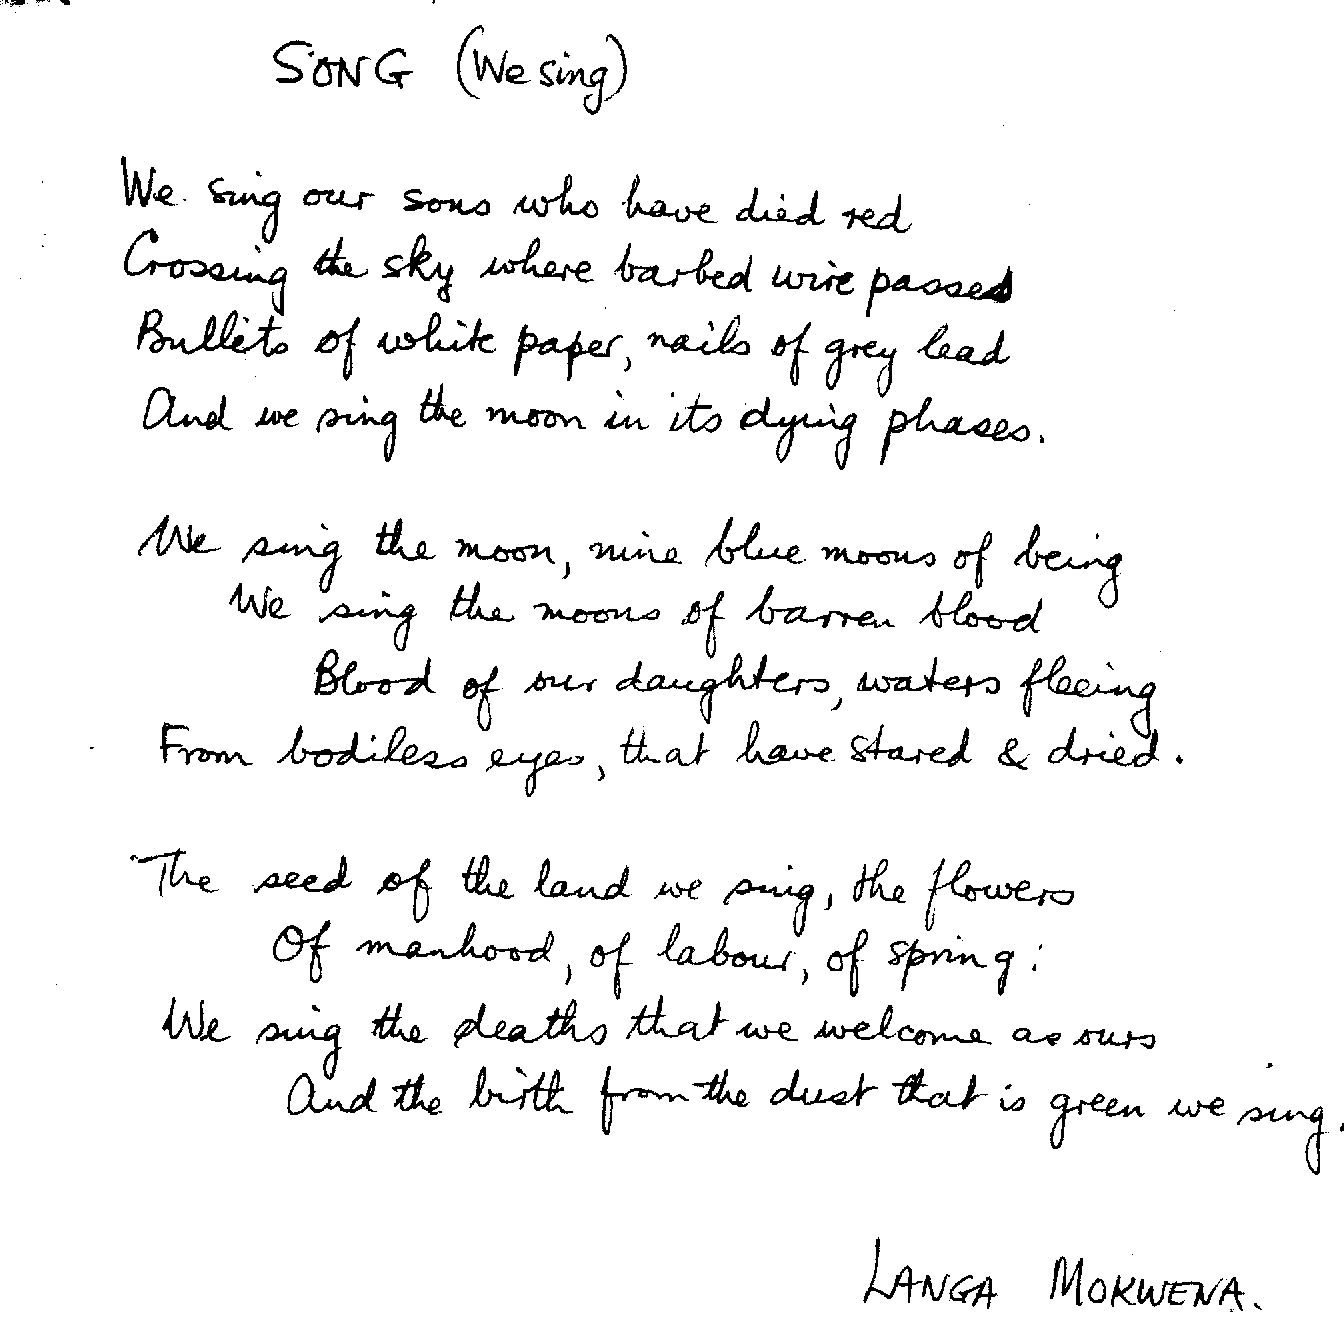 SONG (We sing)
We sing our sons who have died red
Crossing the sky where barbed wire passes
Bullets of white paper, nails of grey lead
And we sing the moon in its dying phases.
We sing the moon, nine blue moons of being
We sing the moons of barren blood
Blood of our daughters, waters fleeing
From bodiless eyes, that have stared & dried.
The seed of the land we sing, the flowers
Of manhood, of labour, of spring:
We sing the deaths that we welcome as ours
And the birth from the dust that is green we sing.
LANGA MOKWENA.